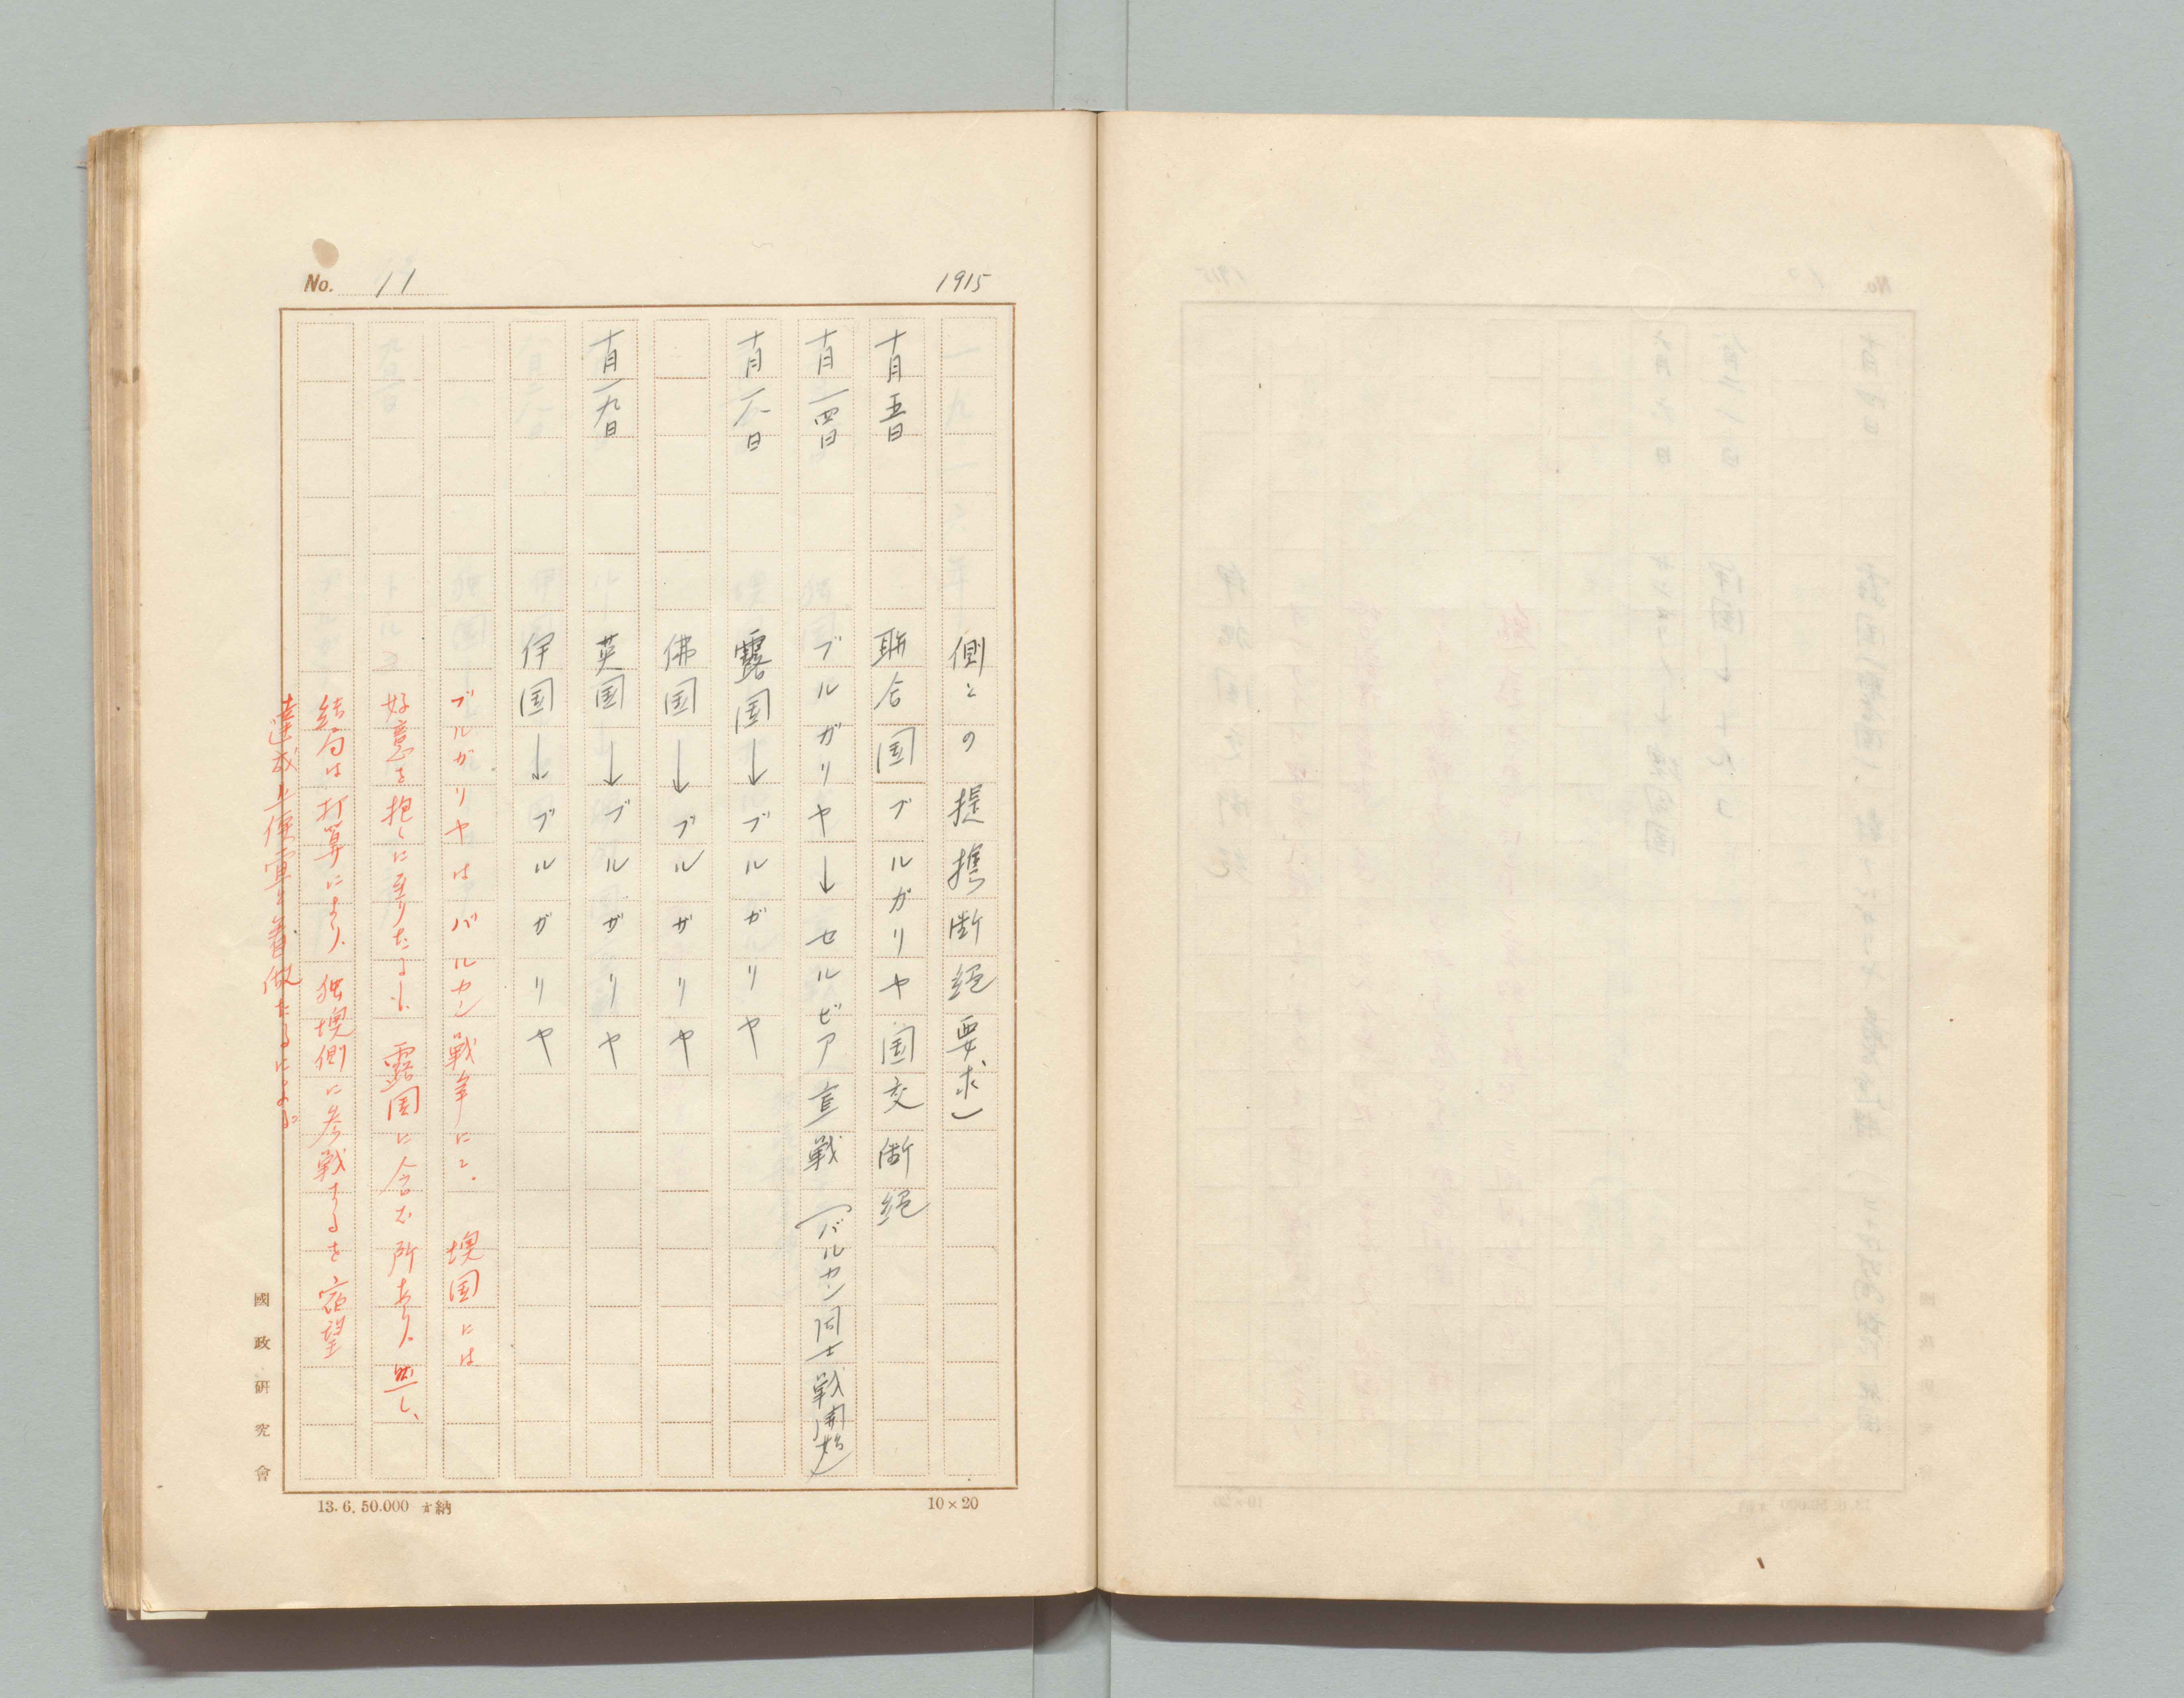 No. 11
1915
側との提携断絶要求)
十月五日 聯合国ブルガリヤ国交断絶
十月一四日 ブルガリヤ→セルビア宣戦(バルカン同士戦開始)
十月一八日 露国→ブルガリヤ
佛国→ブルガリヤ
十月一九日 英国→ブルガリヤ
伊国→ブルガリヤ
ブルガリヤはバルカン戦争にて、墺国には
好意を抱くに至りたるも、露国に含む所あり、然し、
結局は打算により、独墺側に参戦するを宿望
達成上便宜と看做たるによる。
國政研究會
13. 6. 50.000 納
10×20